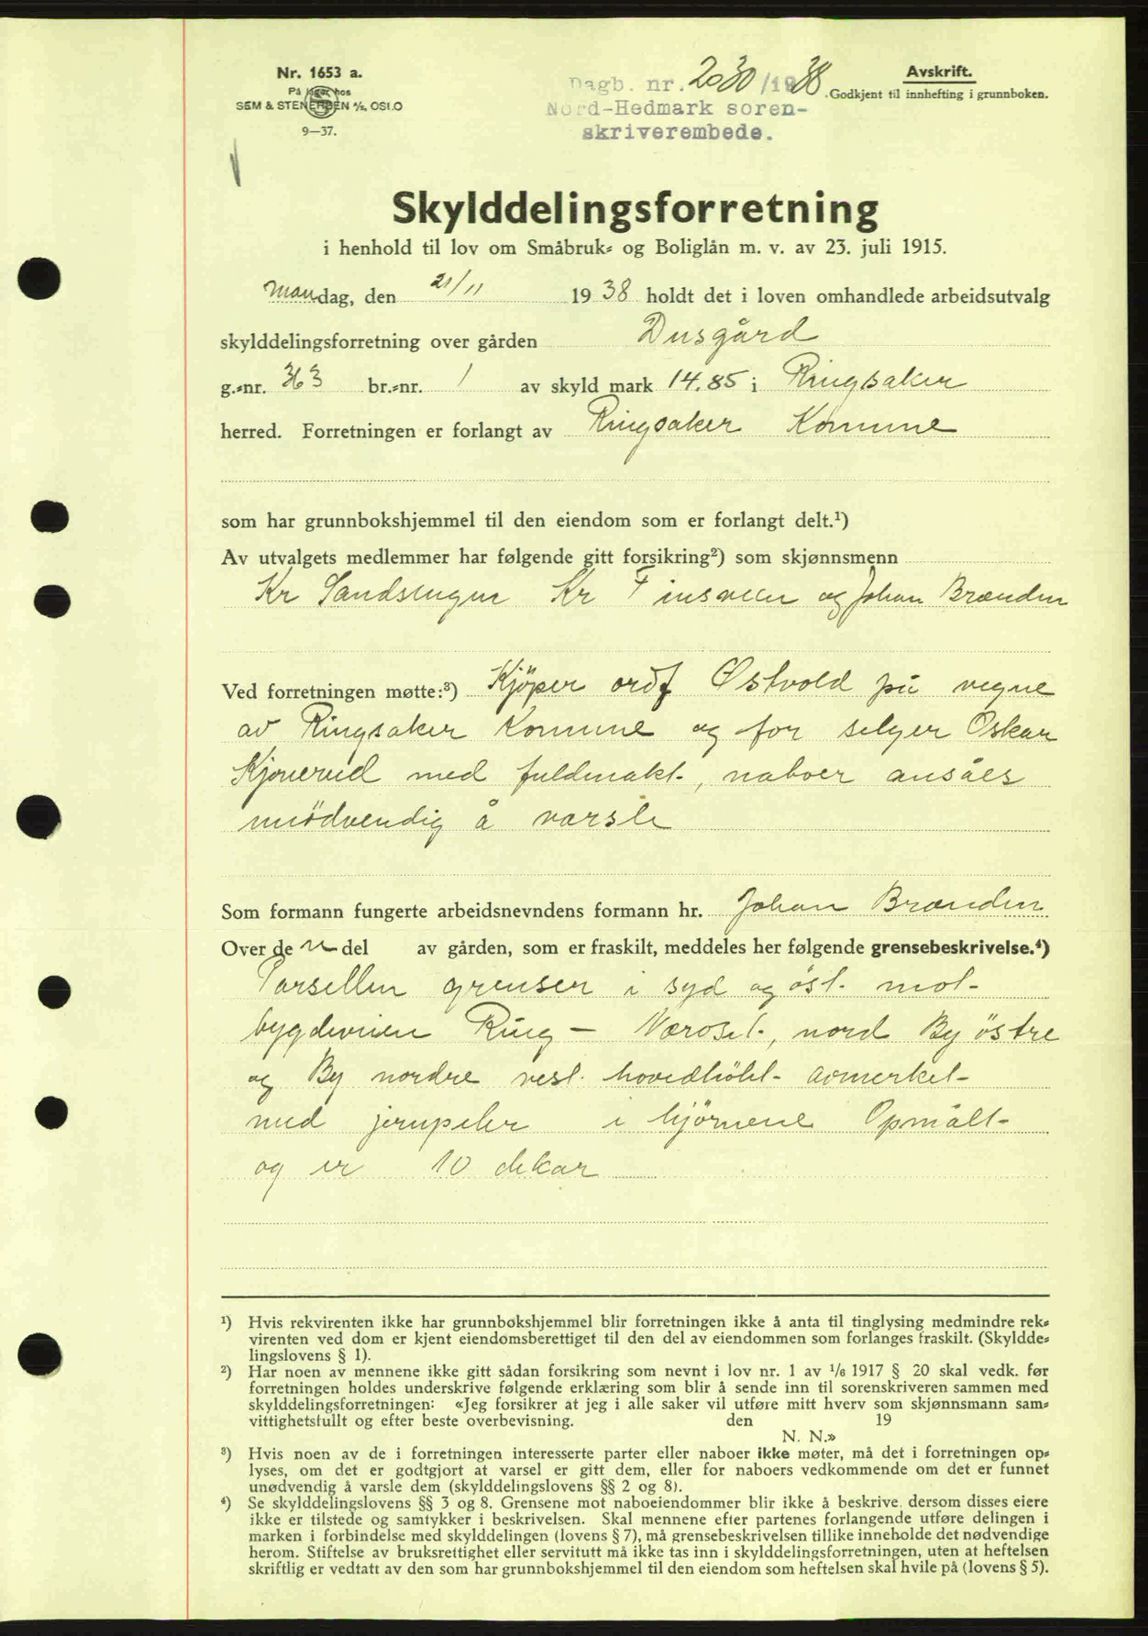 Nr. 1653 a.
På lager hos
SEM & STENERSEN A/S, OSLO
9—37.
Dagb. nr. 2030/1938
Nord-Hedmark soren-
skriverembede.
Avskrift.
Godkjent til innhefting i grunnboken.
Skylddelingsforretning
i henhold til lov om Småbruk- og Boliglån m. v. av 23. juli 1915.
Mandag, den 21/11 1938 holdt det i loven omhandlede arbeidsutvalg
skylddelingsforretning over gården Dusgård
g.-nr. 363 br.-nr. 1 av skyld mark 14.85 i Ringsaker
herred. Forretningen er forlangt av Ringsaker Komune
som har grunnbokshjemmel til den eiendom som er forlangt delt.¹)
Av utvalgets medlemmer har følgende gitt forsikring²) som skjønnsmenn
Kr Kr Finsveen og Johan Brænden
Ved forretningen møtte:³) Kjöper ordf Østvold på vegne
av Ringsaker Komune og for selger Oskar
Kjonerud med fuldmakt, naboer ansåes
unödvendig å varsle
Som formann fungerte arbeidsnevndens formann hr. Johan Brænden
Over de n del av gården, som er fraskilt, meddeles her følgende grensebeskrivelse.⁴)
Parsellen grenser i syd og öst mot
bygdeveien Ring - Næroset, nord By östre
og By nordre vest hovedbölet avmerket
med jernpeler i hjörnene Opmålt
og er 10 dekar
¹) Hvis rekvirenten ikke har grunnbokshjemmel blir forretningen ikke å anta til tinglysing medmindre rek-
virenten ved dom er kjent eiendomsberettiget til den del av eiendommen som forlanges fraskilt. (Skyldde-
lingslovens § 1).
²) Har noen av mennene ikke gitt sådan forsikring som nevnt i lov nr. 1 av ¹/₆ 1917 § 20 skal vedk. før
forretningen holdes underskrive følgende erklæring som blir å sende inn til sorenskriveren sammen med
skylddelingsforretningen: «Jeg forsikrer at jeg i alle saker vil utføre mitt hverv som skjønnsmann sam-
vittighetsfullt og efter beste overbevisning. den 19
N. N.»
³) Hvis noen av de i forretningen interesserte parter eller naboer ikke møter, må det i forretningen op-
lyses, om det er godtgjort at varsel er gitt dem, eller for naboers vedkommende om det er funnet
unødvendig å varsle dem (skylddelingslovens §§ 2 og 8).
⁴) Se skylddelingslovens §§ 3 og 8. Grensene mot naboeiendommer blir ikke å beskrive, dersom disses eiere
ikke er tilstede og samtykker i beskrivelsen. Skal mennene efter partenes forlangende utføre delingen i
marken i forbindelse med skylddelingen (lovens § 7), må grensebeskrivelsen tillike inneholde det nødvendige
herom. Stiftelse av bruksrettighet eller servitutt må ikke tas inn i skylddelingsforretningen, uten at heftelsen
skriftlig er vedtatt av den som har grunnbokshjemmel til den eiendom som heftelsen skal hvile på (lovens § 5).